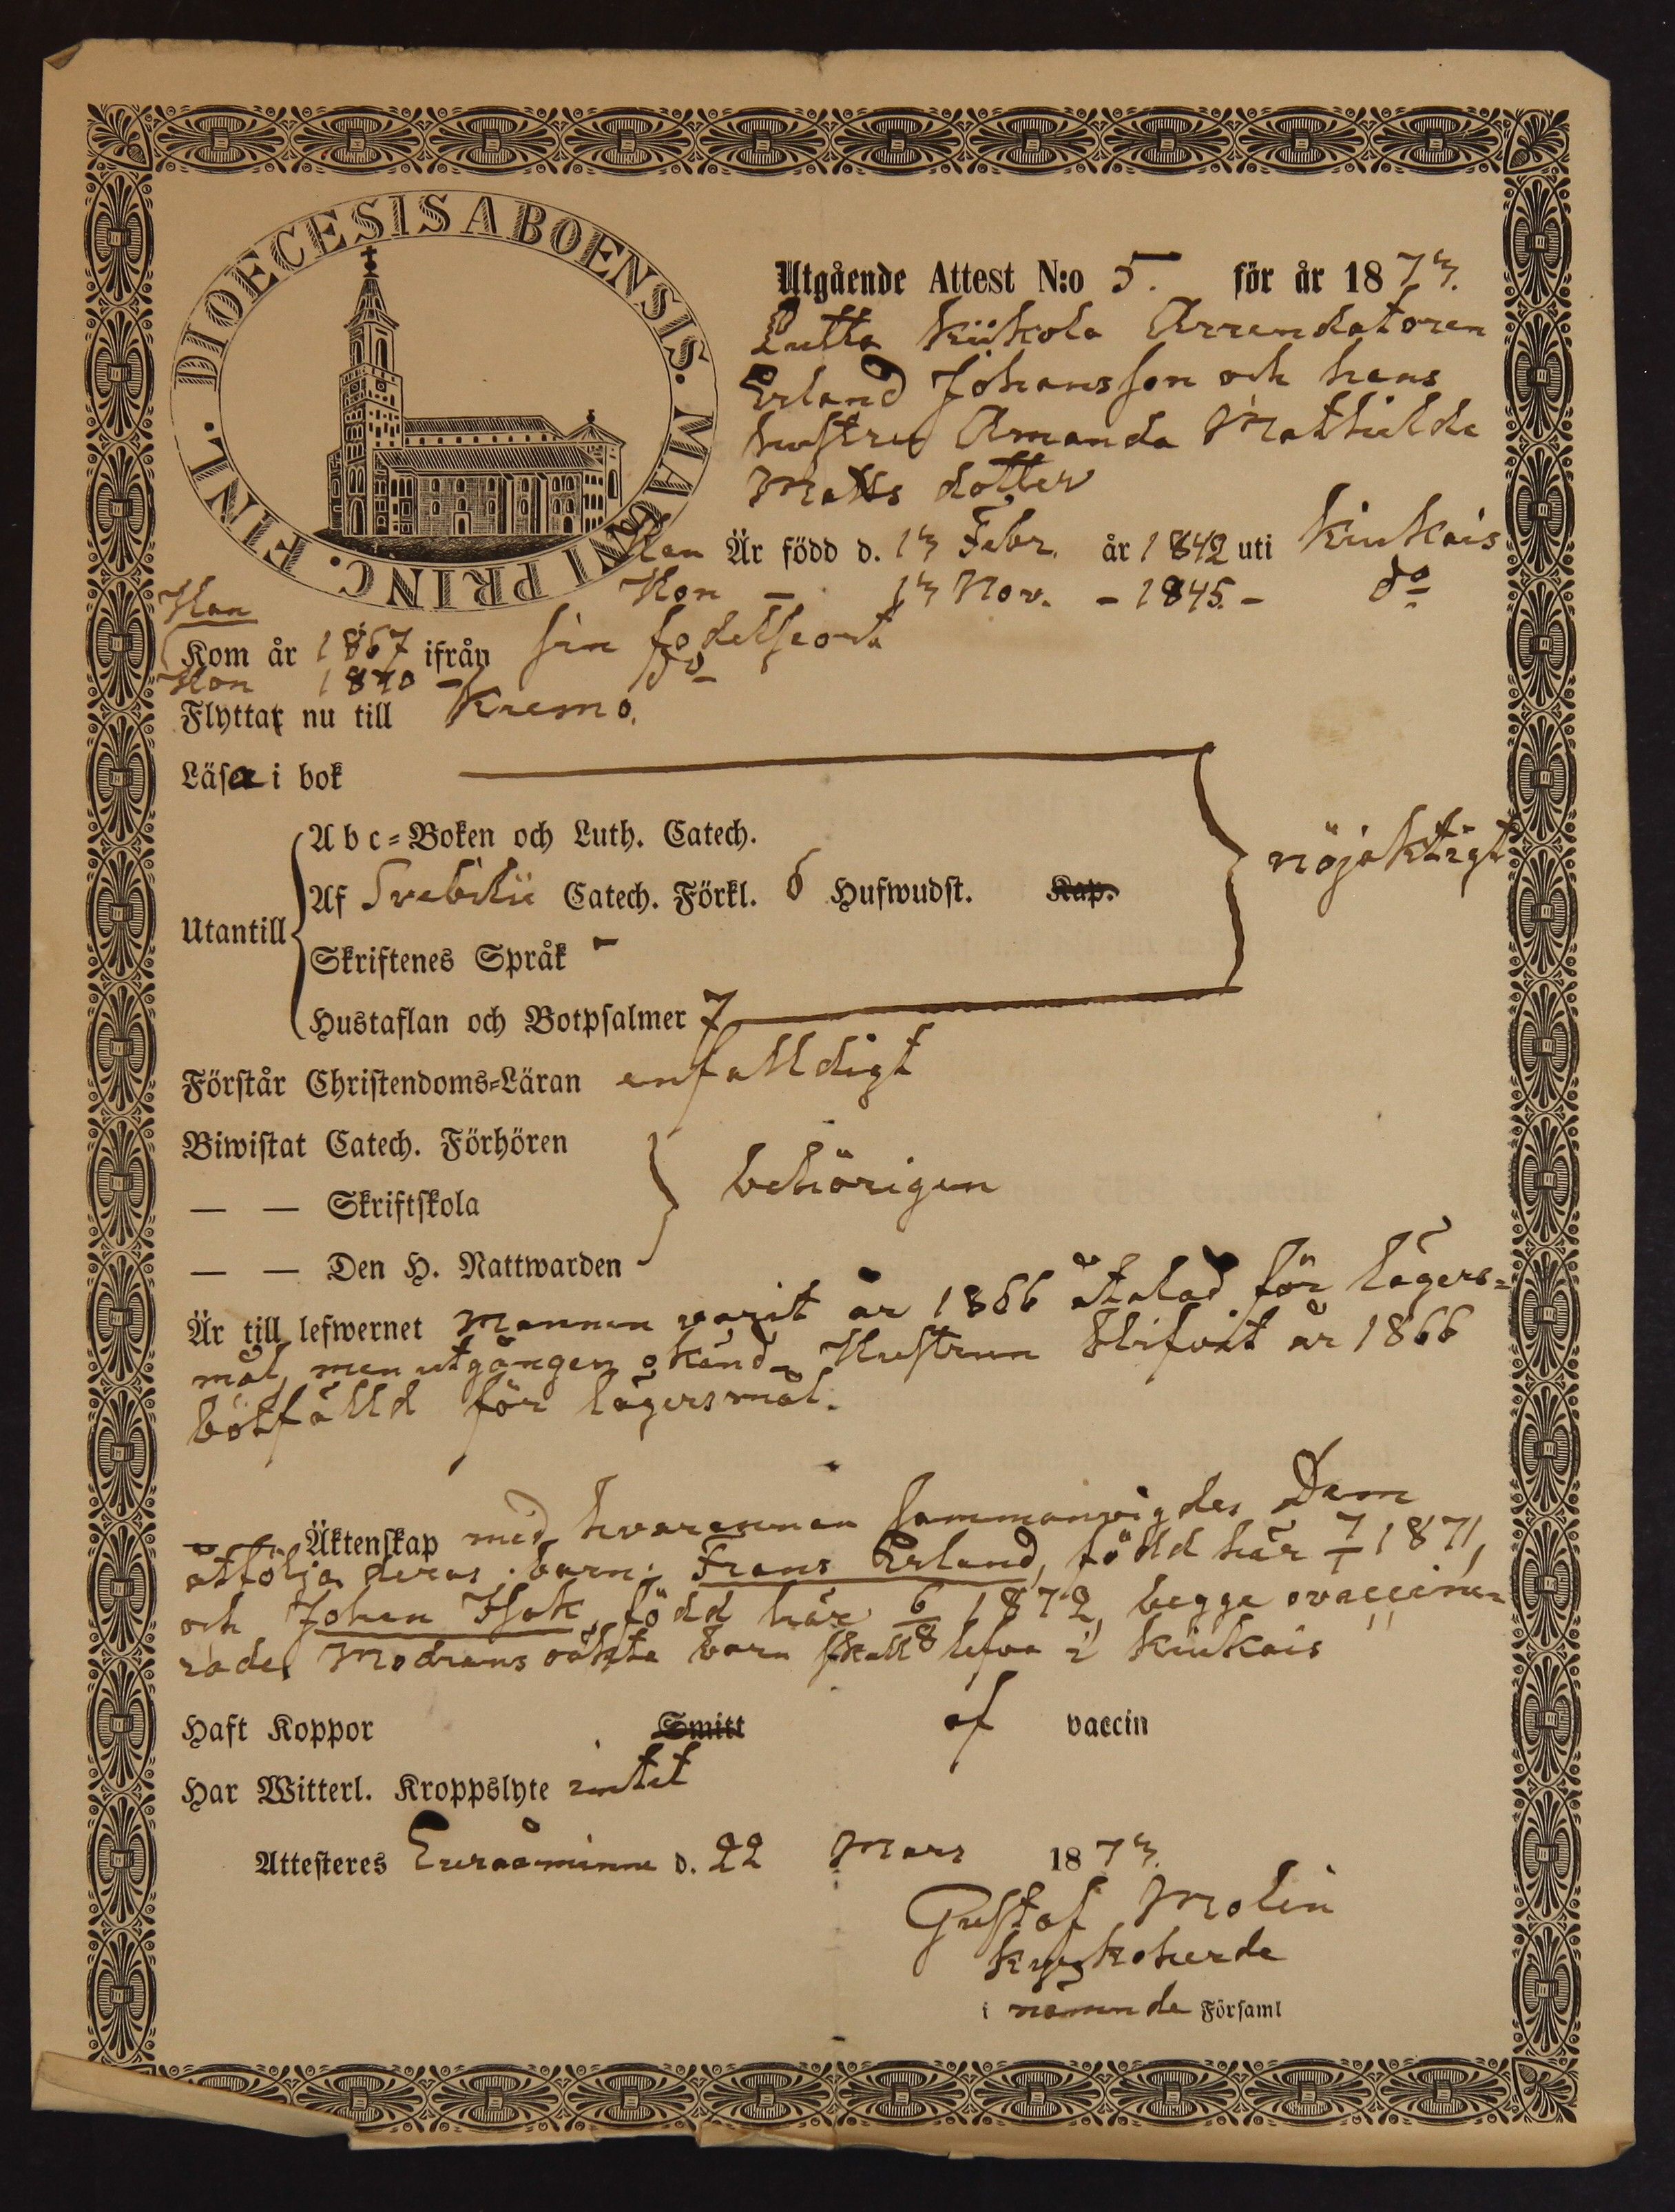 DIOECESIS ABOENSIS. MAGNI PRINC. FINL.
Utgående Attest N:o 5. för år 1873.
Lutta Kiikola Arrendatoren
Erland Johansson och hans
hustru Amanda Mathilda
Matts dotter
Han Är född d. 13 Febr. år 1842 uti Kiukais
Hon - 13 Nov. - 1845. - do
Han
Kom år 1867 ifrån sin födelseort
Hon 1870 - do
Flyttar nu till Kremo.
Läsa i bok
Abc-Boken och Luth. Catech.
nöjaktigt
Af Svebilii Catech. Förkl. 6 Hufwudst. Kap.
Utantill
Skriftenes Språk -
Hustaflan och Botpsalmer 7
Förstår Christendoms-Läran enfalldigt
Biwistat Catech. Förhören
— — Skriftskola
behörigen
— — Den H. Nattwarden
Är till lefwernet Mannen varit år 1866 åtalad för lägers-
mål, men utgången okänd. Hustrun blifvit år 1866
bötfälld för lägersmål.
Äktenskap med hvarannan sammanvigdes Dem
åtfölja deras barn: Frans Erland, född här 7/1 1871,
och Johan Isak, född här 6/8 1872, begge ovaccine-
rade. Modrens oäkta barn skall lefva i Kiukais
Haft Koppor Smitt af vaccin
Har Witterl. Kroppslyte intet
Attesteres Euraåminne d. 22 Mars 1873.
Gustaf Molin
Kyrkoherde
i nämnde Församl